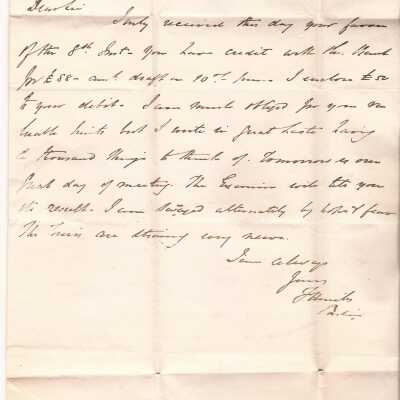 Dear Sir
I only received this day your favor
of the 8th Inst - You have credit with the Bank
for £88 - draft on 10th I enclose £50
to your debit - I am much obliged for your
hints but I write in great haste having
a thousand things to think of. Tomorrow is our
first day of meeting. The Examiner will tell you
the result - I am swayed alternately by hope & fear
The Tories are straining every nerve.
I am always
Yours